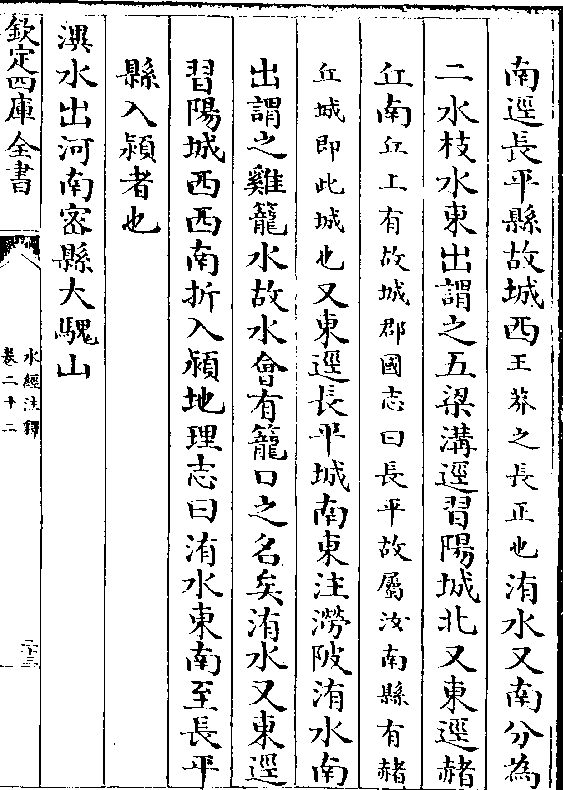 南逕長平縣故城西王莽之長正也洧水又南分為
二水枝水東出謂之五梁溝逕習陽城北又東逕赭
丘南丘上有故城郡國志曰長平故屬汝南縣有赭
丘城即此城也又東逕長平城南東注澇陂洧水南
出謂之雞籠水故水會有籠口之名矣洧水又東逕
習陽城西西南折入潁地理志曰洧水東南至長平
縣入潁者也
潩水出河南密縣大騩山
欽定四庫全書
水經注釋
卷二十二